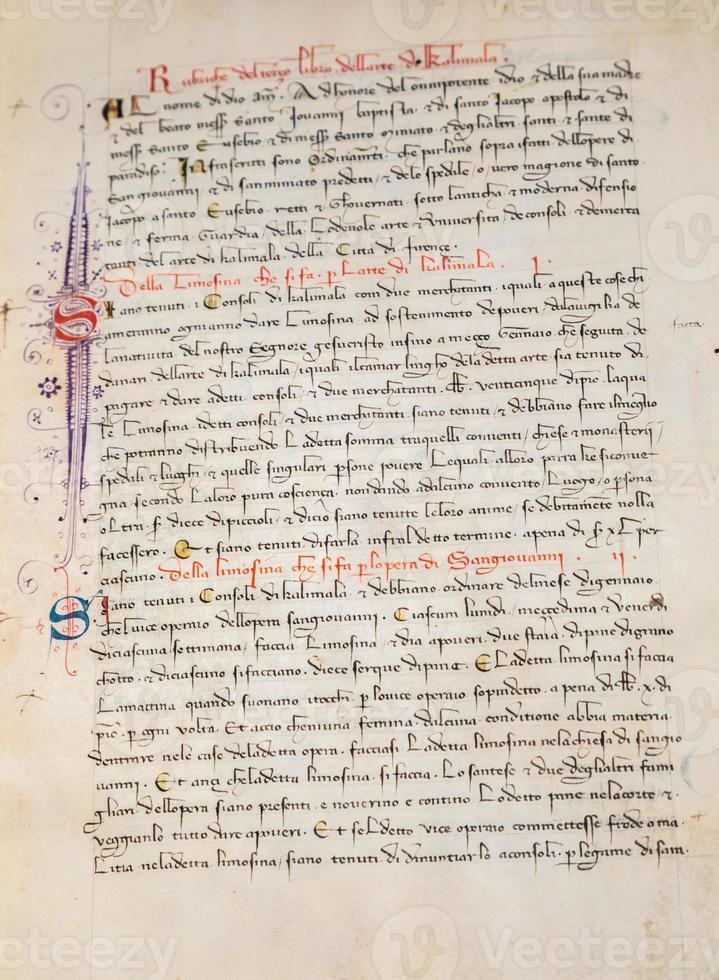 Rubriche del terço libro dellarte di Kalimala.
AL nome di dio Am. Ad honore del omnipotente idio & della sua madre
& del beato mess Santo Iovanni baptista & di santo Jacopo apostolo & di
mess Santo Eusebio & di mess Santo Miniato & degli altri santi & sante di
paradiso. Infrascritti sono Ordinamti che parlano sopra ifatti dellopere di
San giovanni & di san miniato predetti & de lo spedile o vero magione di santo
Jacopo a santo Eusebio retti & Ghovernati sotto lanticha & moderna difensio
ne & ferma Guardia della Lodevole arte & Università de consoli & demerca
tanti del arte di kalimala della Città di firence.
Della Limosina che si fa p larte di kalimala. I.
Siano tenuti i Consoli di kalimala com due merchatanti iquali aqueste cose chi
ameranno ogni anno dare Limosina ad sostenimento depoveri dalavigilia de
lanatività del nostro Segnore giesu cristo insino a mecço Gennaio che seguita de
danari dellarte di kalimala iquali ilcamarlingho dela detta arte sia tenuto di
pagare & dare adetti consoli & due merchatanti lib. venticinque dipic. laqua
le Limosina idetti consoli & due merchatanti siano tenuti & debbiano fare ilmeglio
che potranno distribuendo Ladetta somma tra quelli conventi chiese & monasterii
spedali & luoghi & quelle singulari psone povere Lequali alloro parra lire si convet
gna secondo Laloro pura coscienca non dando adalcuno convento Luogo o psona
oltra s. diece dipiccioli & dicio siano tenute leloro anime se debitamete nolla
facessero. Et siano tenuti di farla infral detto termine apena di s. xl per
ciascuno. Della limosina che si fa p lopera di Sangiovanni. II.
Siano tenuti i Consoli di kalimala & debbiano ordinare delmese digennaio
chel vice operaio dellopera sangiovanni. Ciascun lundi mecçedima & venerdi
diciascuna settimana faccia Limosina & dia apoveri due staia dipane digrano
chotto & diciascuno si facciano diece serque dipani. E Ladetta limosina si faccia
Lamattina quando suonano itocchi p louice operaio sopradetto a pena di lib. x. di
pic. p ogni volta. Et accio cheniuna femina dalcuna conditione abbia materia
dentrare nele case deladetta opera facciasi Ladetta limosina nela chiesa di sangio
vanni. Et ançi cheladetta limosina si faccia Lo santese & due deglialtri fami
gliari dellopera siano presenti e noverino e contino Lo detto pane nelacorte &
veggianlo tutto dare apoveri. Et sel detto vice operaio commettesse frode o ma
Litia neladetta limosina siano tenuti di dinuntiarlo aconsoli p legame di sam.
facta